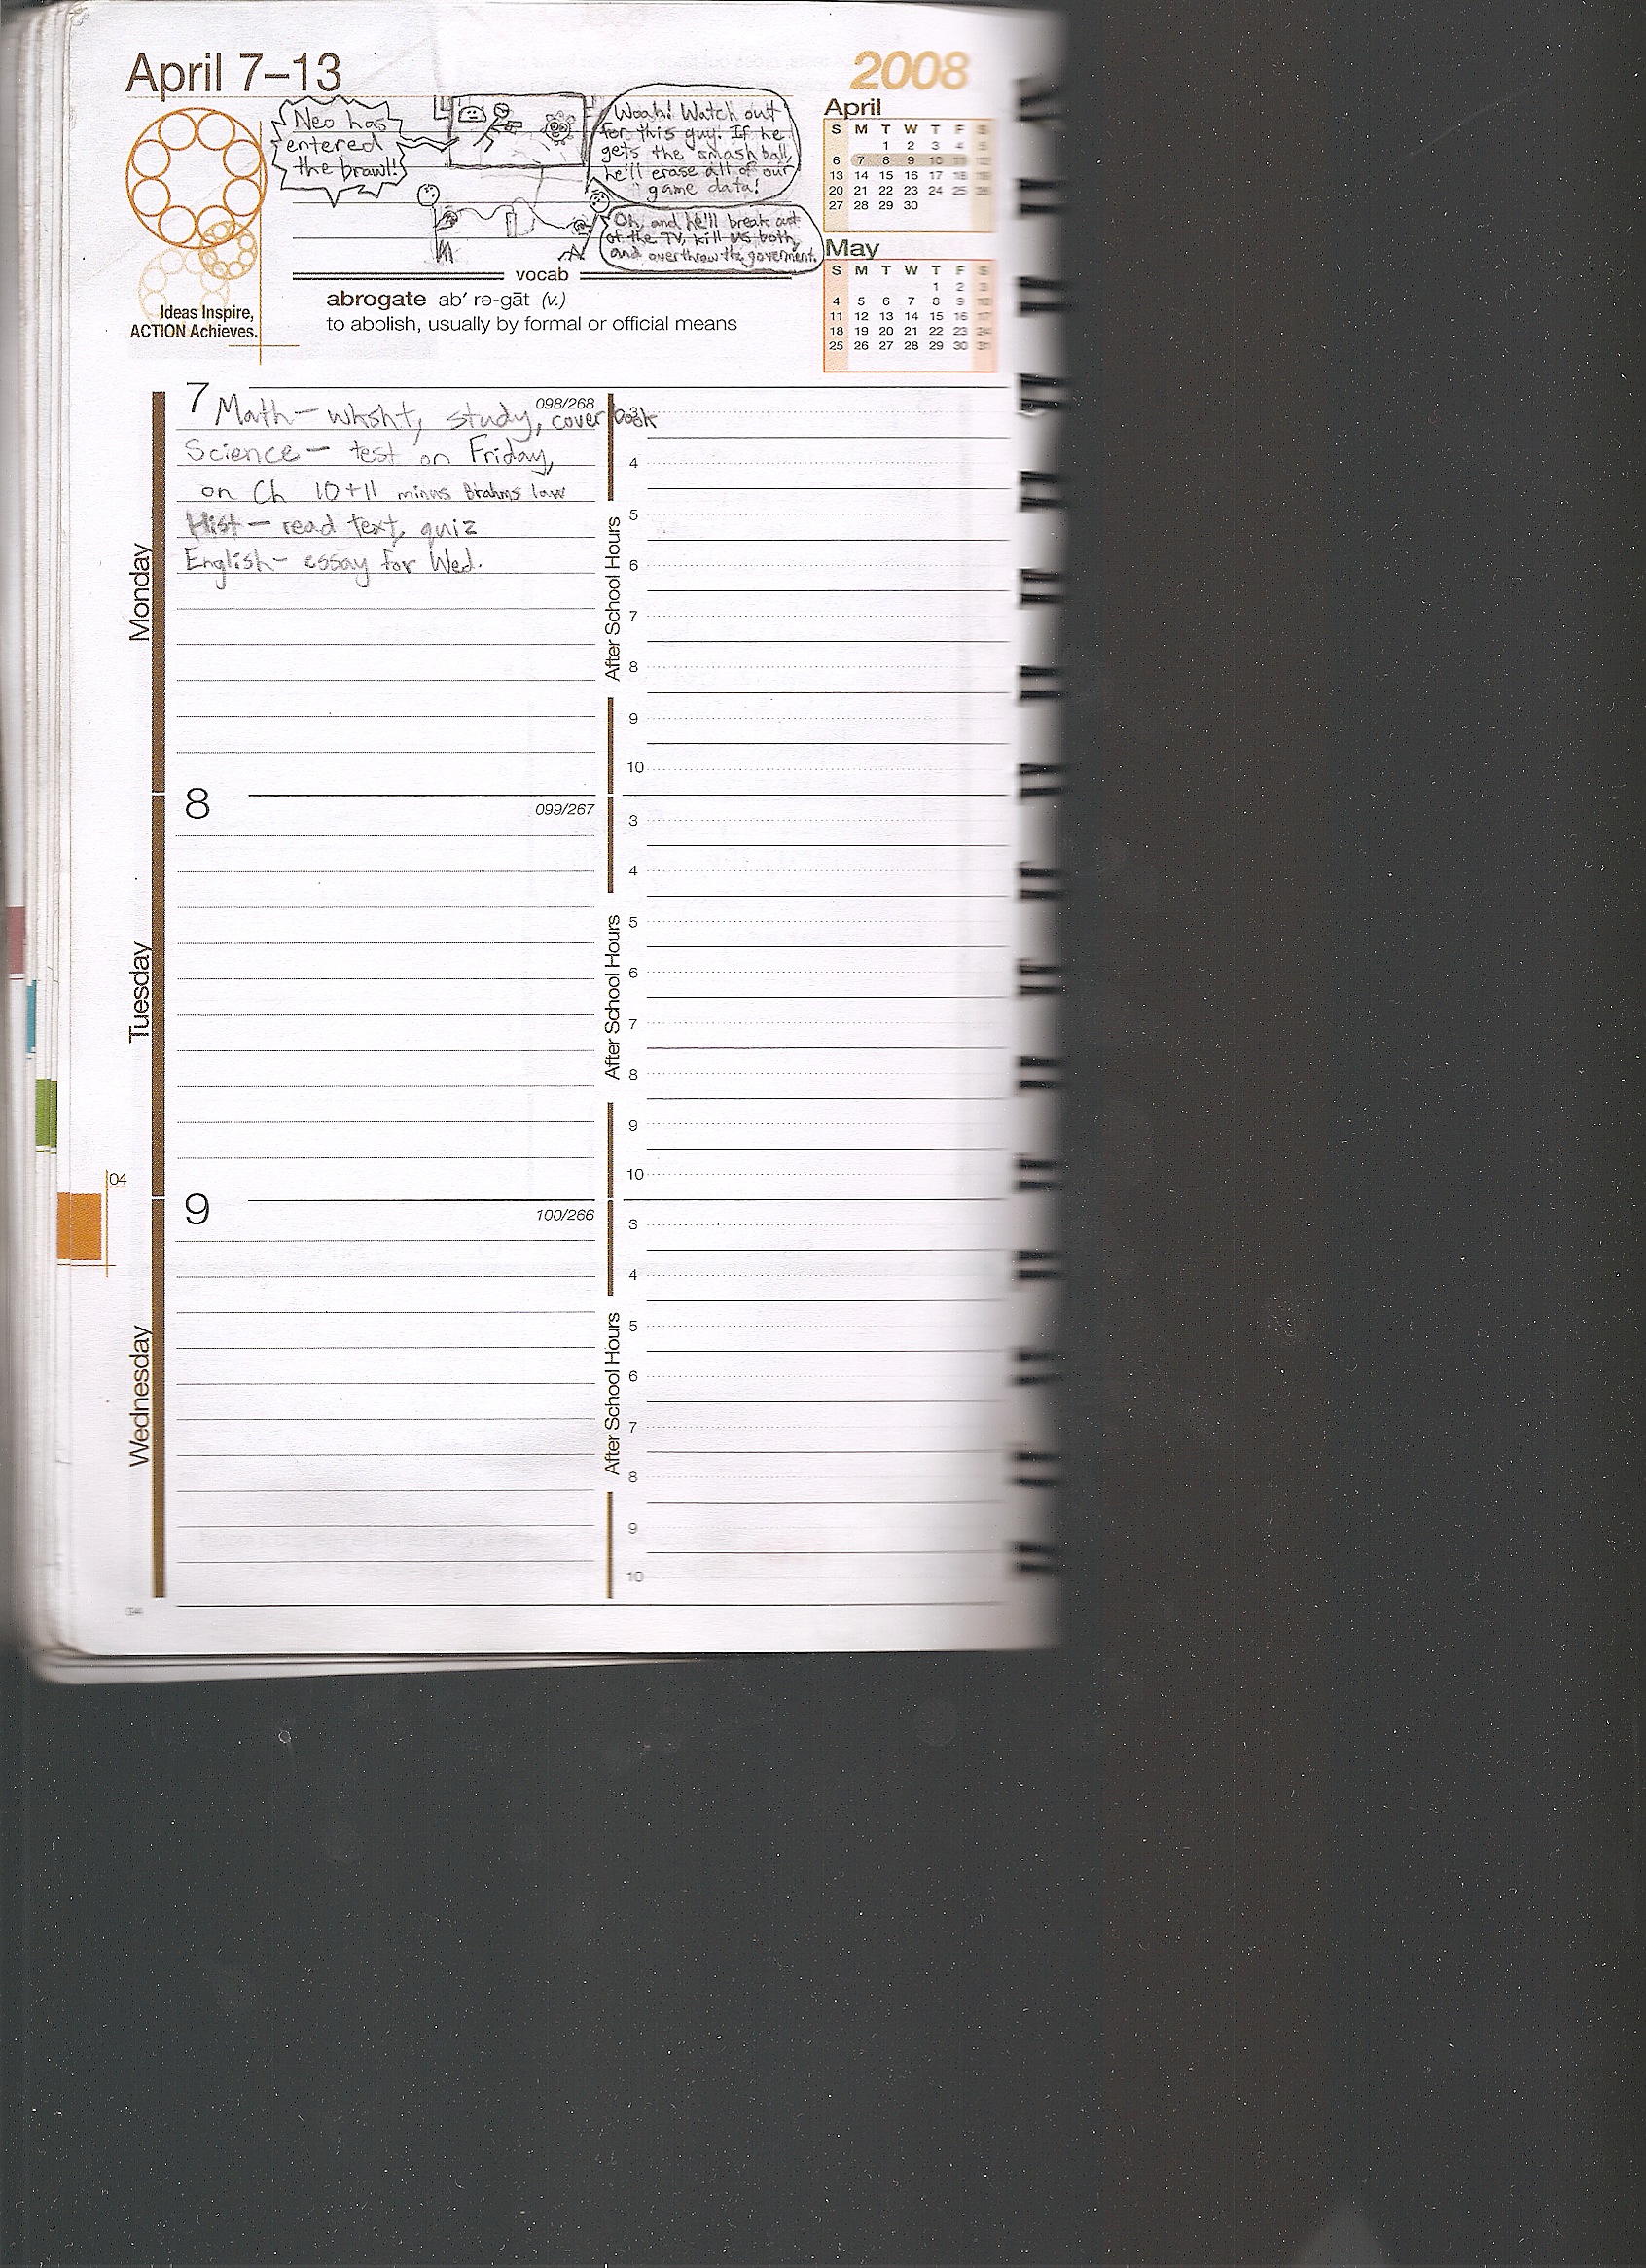 April 7–13
2008
Neo has
entered
the brawl!
Woah! Watch out
for this guy! If he
gets the smash ball,
he'll erase all of our
game data!
Oh, and he'll break out
of the TV, kill us both,
and overthrow the goverment.
Ideas Inspire,
ACTION Achieves.
vocab
abrogate ab′ rə-gāt (v.)
to abolish, usually by formal or official means
April
S M T W T F S
1 2 3 4 5
6 7 8 9 10 11 12
13 14 15 16 17 18 19
20 21 22 23 24 25 26
27 28 29 30
May
S M T W T F S
1 2 3
4 5 6 7 8 9 10
11 12 13 14 15 16 17
18 19 20 21 22 23 24
25 26 27 28 29 30 31
Monday
7
098/268
Math – wksht, study, cover book
Science – test on Friday,
on Ch 10+11 minus Brahms law
Hist – read text, quiz
English – essay for Wed.
After School Hours
3
4
5
6
7
8
9
10
Tuesday
8
099/267
After School Hours
3
4
5
6
7
8
9
10
04
Wednesday
9
100/266
After School Hours
3
4
5
6
7
8
9
10
94